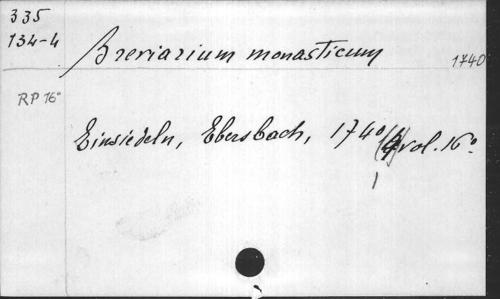 335
134-4
Breviarium monasticum
1740
RP 16°
Einsiedeln, Ebersbach, 1740 (4) vol. 16°.
1